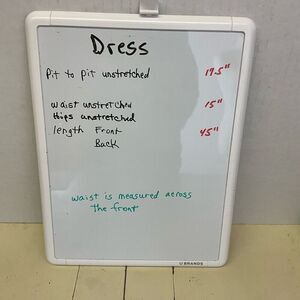 Dress
Pit to pit unstretched 19.5"
waist unstretched 15"
Hips unstretched
length Front 45"
Back
waist is measured across
the front
U BRANDS